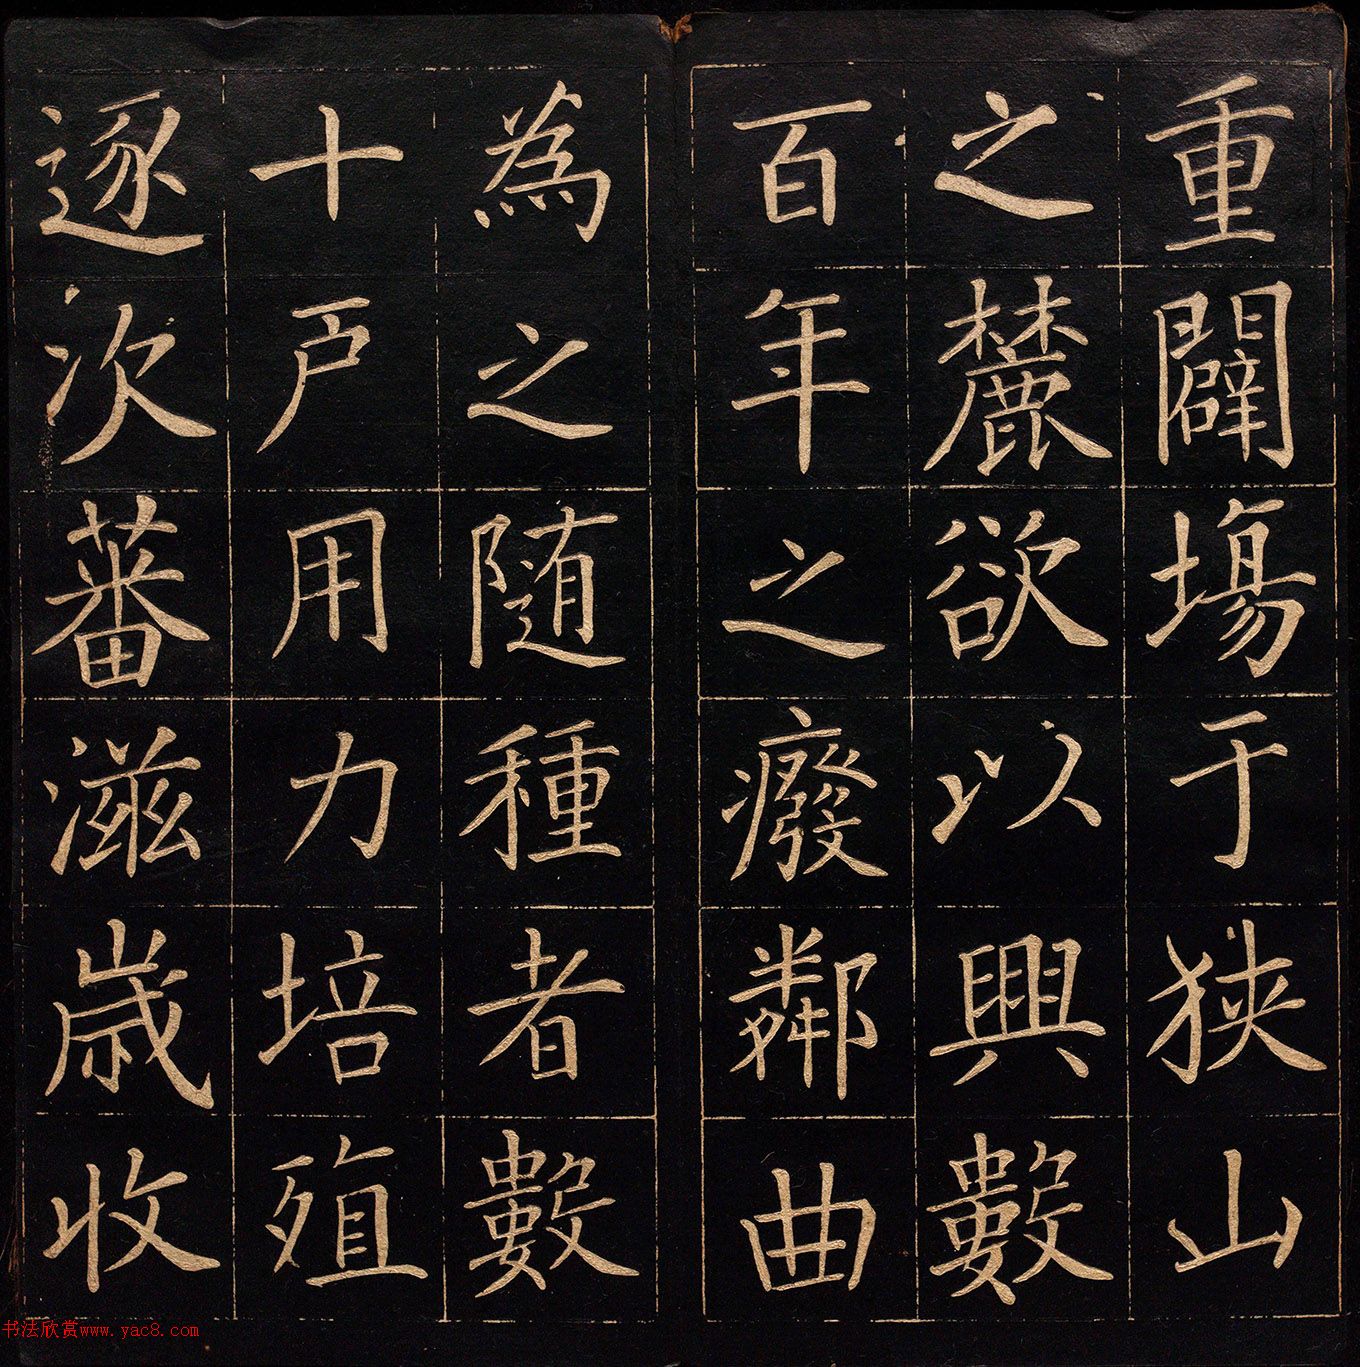 重闢塲于狹山
之麓欲以興數
百年之癈鄰曲
為之随種者數
十戸用力培殖
逐次蕃滋歳收
书法欣赏www.yac8.com